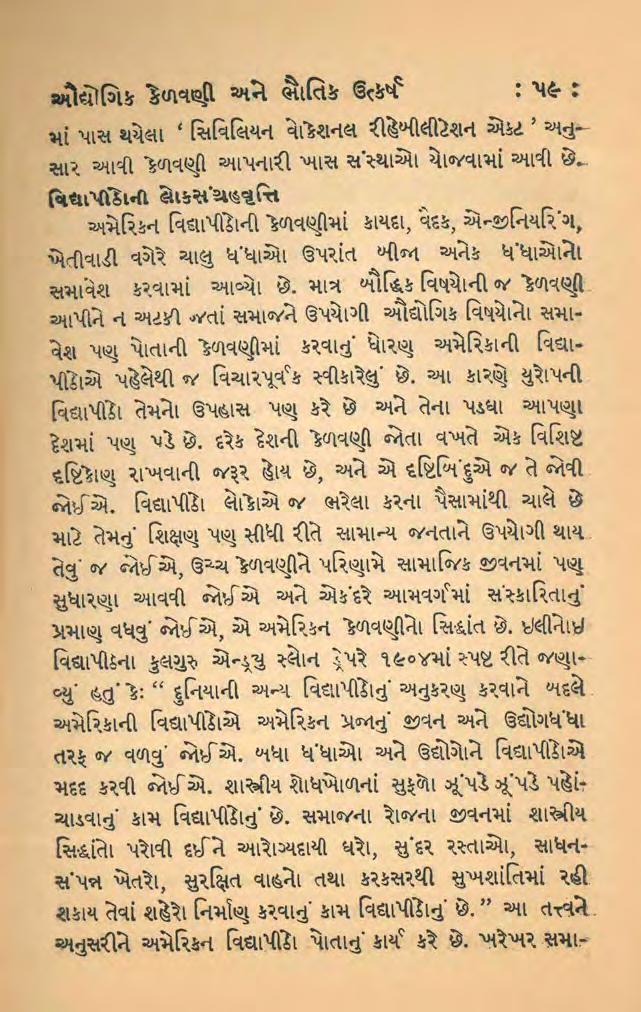 ઔદ્યોગિક કેળવણી અને ભૌતિક ઉત્કર્ષ : ૫૯ :
માં પાસ થયેલા ‘ સિવિલિયન વોકેશનલ રીહેબીલીટેશન એક્ટ ’ અનુ-
સાર આવી કેળવણી આપનારી ખાસ સંસ્થાઓ યોજવામાં આવી છે.
વિદ્યાપીઠોની લોકસંગ્રહવૃત્તિ
અમેરિકન વિદ્યાપીઠોની કેળવણીમાં કાયદા, વૈદક, એન્જીનિયરિંગ,
ખેતીવાડી વગેરે ચાલુ ધંધાઓ ઉપરાંત બીજા અનેક ધંધાઓનો
સમાવેશ કરવામાં આવ્યો છે. માત્ર બૌદ્ધિક વિષયોની જ કેળવણી
આપીને ન અટકી જતાં સમાજને ઉપયોગી ઔદ્યોગિક વિષયોનો સમા-
વેશ પણ પોતાની કેળવણીમાં કરવાનું ધોરણ અમેરિકાની વિદ્યા-
પીઠોએ પહેલેથી જ વિચારપૂર્વક સ્વીકારેલું છે. આ કારણે યુરોપની
વિદ્યાપીઠો તેમનો ઉપહાસ પણ કરે છે અને તેના પડઘા આપણા
દેશમાં પણ પડે છે. દરેક દેશની કેળવણી જોતા વખતે એક વિશિષ્ટ
દષ્ટિકોણ રાખવાની જરૂર હોય છે, અને એ દષ્ટિબિંદુએ જ તે જોવી
જોઈએ. વિદ્યાપીઠો લોકોએ જ ભરેલા કરના પૈસામાંથી ચાલે છે
માટે તેમનું શિક્ષણ પણ સીધી રીતે સામાન્ય જનતાને ઉપયોગી થાય
તેવું જ જોઈએ, ઉચ્ચ કેળવણીને પરિણામે સામાજિક જીવનમાં પણ
સુધારણા આવવી જોઈએ અને એકંદરે આમવર્ગમાં સંસ્કારિતાનું
પ્રમાણ વધવું જોઈએ, એ અમેરિકન કેળવણીનો સિદ્ધાંત છે. ઈલીનોઈ
વિદ્યાપીઠના કુલગુરુ એન્ડ્રયુ સ્લોન ડ્રેપરે ૧૯૦૪માં સ્પષ્ટ રીતે જણા-
વ્યું હતું કેઃ “ દુનિયાની અન્ય વિદ્યાપીઠોનું અનુકરણ કરવાને બદલે
અમેરિકાની વિદ્યાપીઠોએ અમેરિકન પ્રજાનું જીવન અને ઉદ્યોગધંધા
તરફ જ વળવું જોઈએ. બધા ધંધાઓ અને ઉદ્યોગોને વિદ્યાપીઠોએ
મદદ કરવી જોઈએ. શાસ્ત્રીય શોધખોળનાં સુફળો ઝૂંપડે ઝૂંપડે પહોં-
ચાડવાનું કામ વિદ્યાપીઠોનું છે. સમાજના રોજના જીવનમાં શાસ્ત્રીય
સિદ્ધાંતો પરોવી દઈને આરોગ્યદાયી ઘરો, સુંદર રસ્તાઓ, સાધન-
સંપન્ન ખેતરો, સુરક્ષિત વાહનો તથા કરકસરથી સુખશાંતિમાં રહી
શકાય તેવાં શહેરો નિર્માણ કરવાનું કામ વિદ્યાપીઠોનું છે.” આ તત્ત્વને
અનુસરીને અમેરિકન વિદ્યાપીઠો પોતાનું કાર્ય કરે છે. ખરેખર સમા-